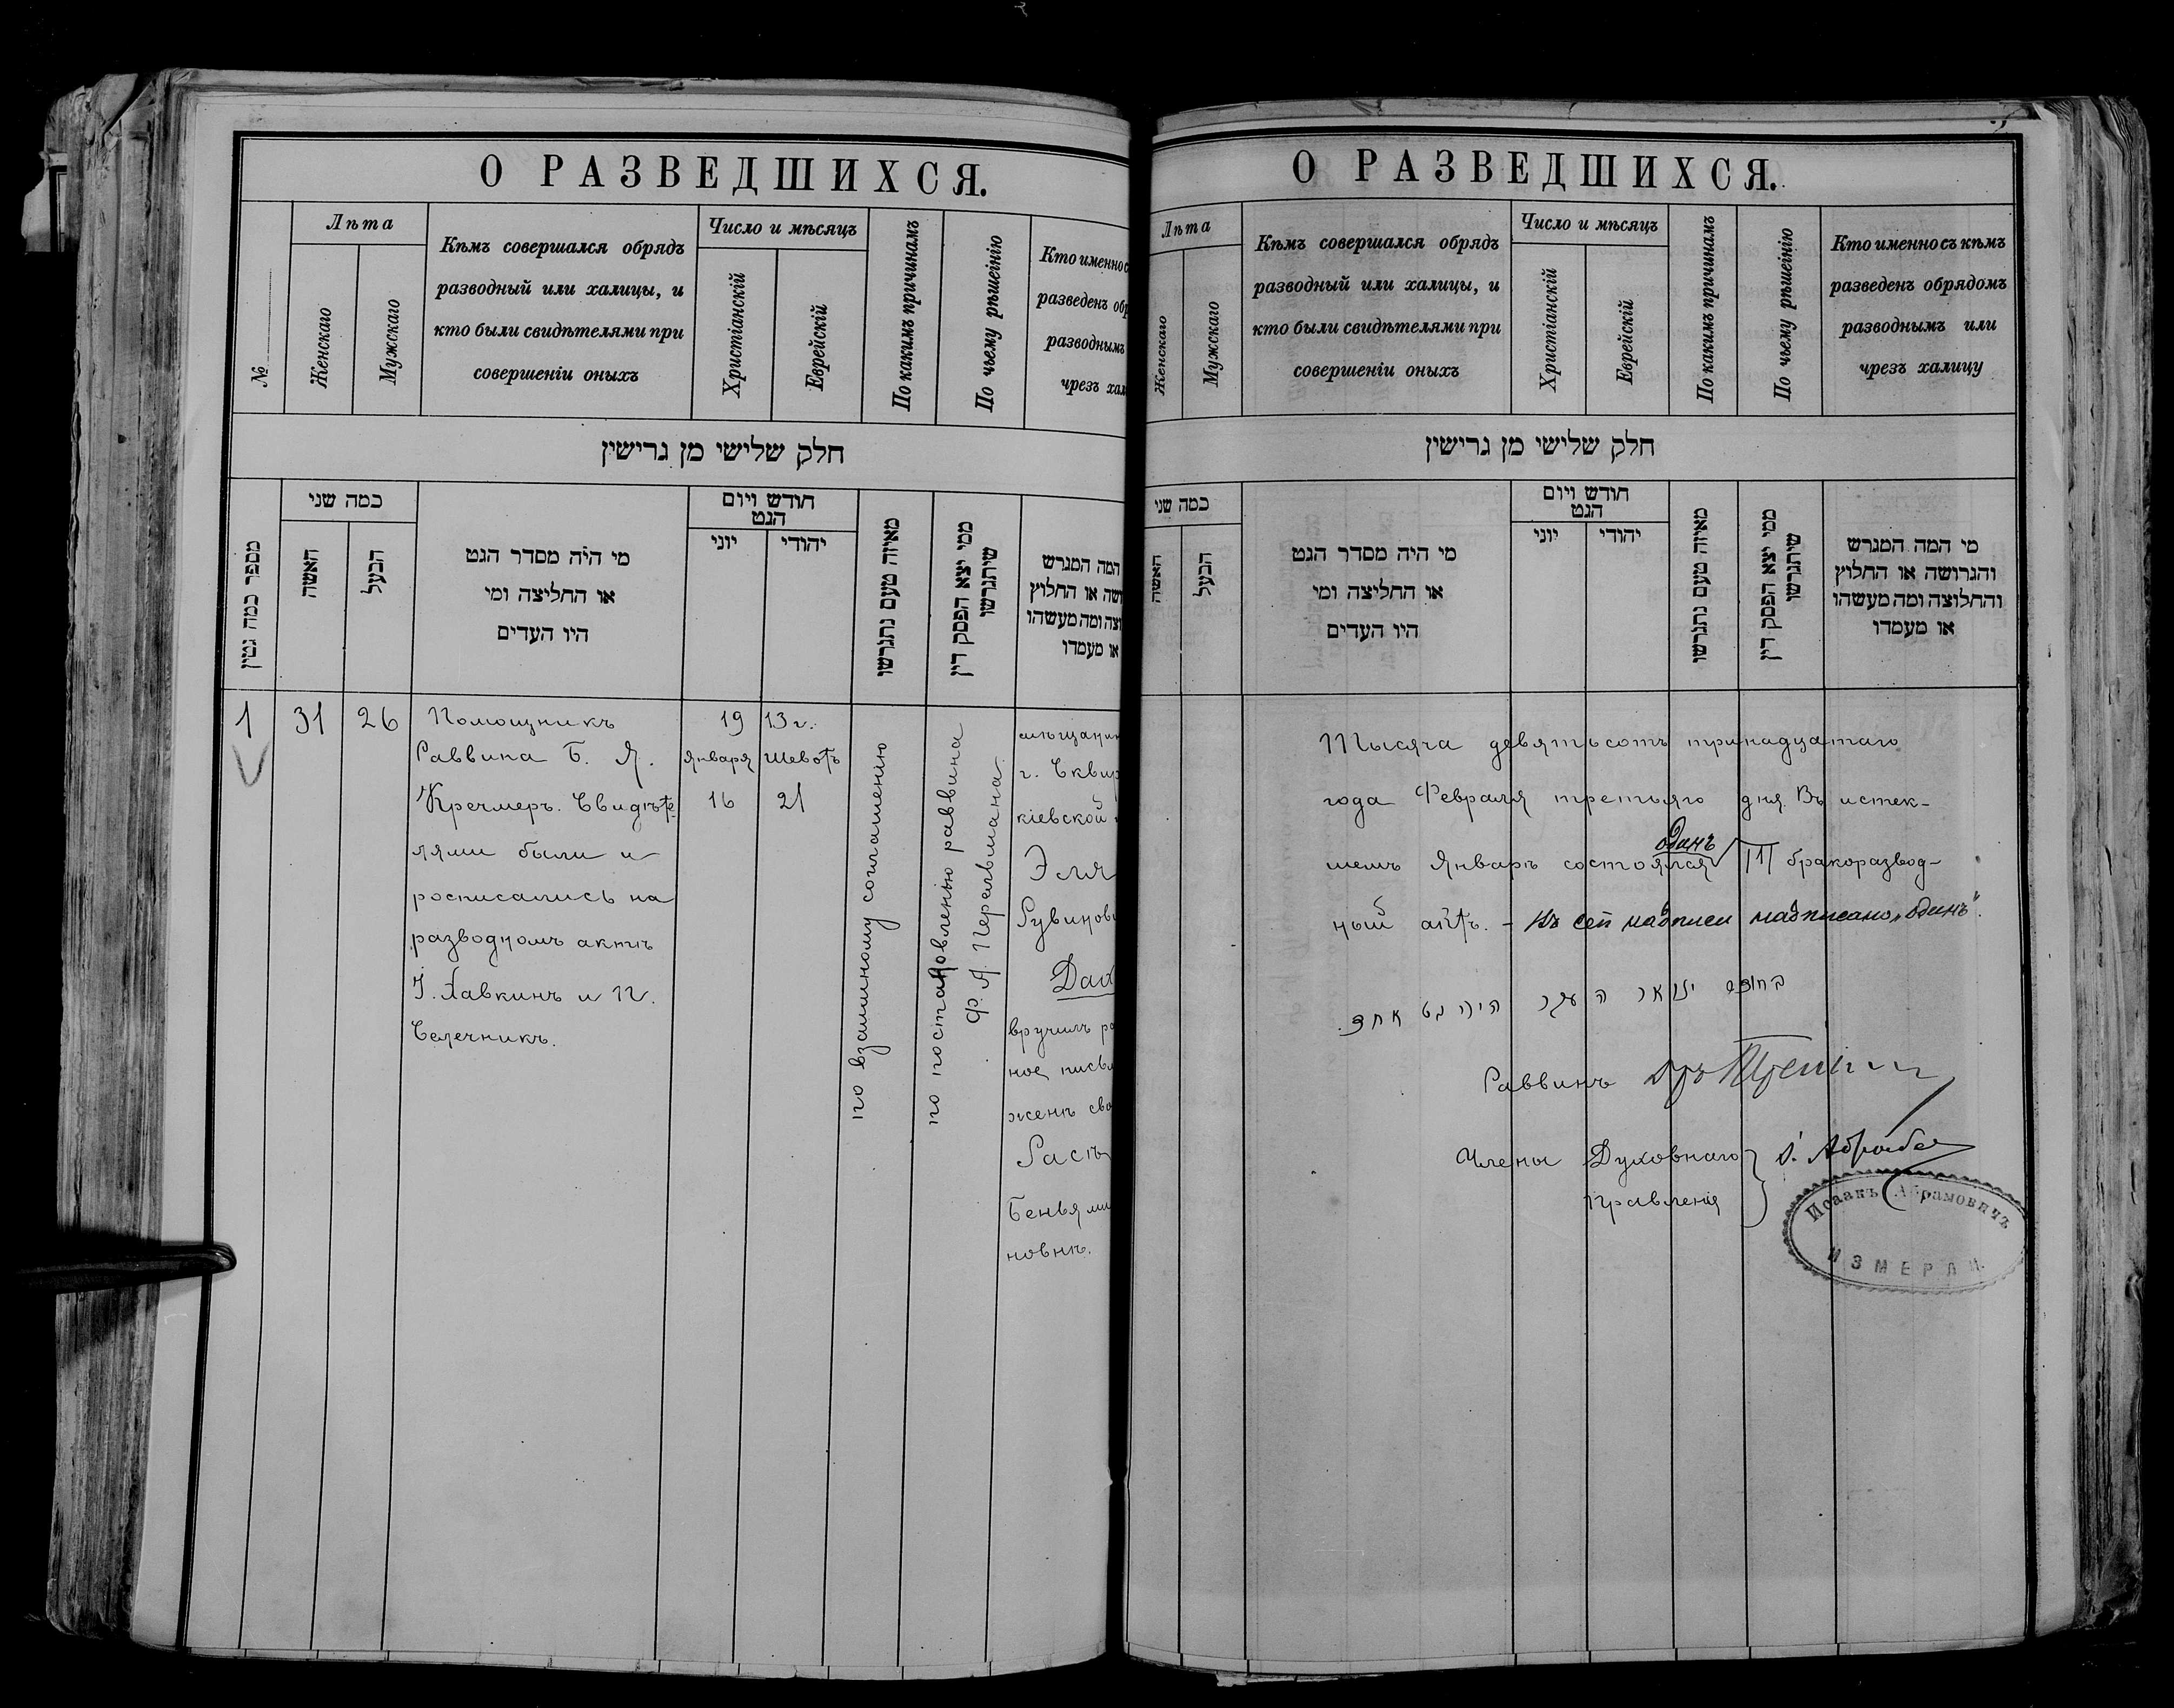 О РАЗВЕДШИХСЯ.
№
Лѣта
Женскаго
Мужскаго
Кѣмъ совершался обрядъ
разводный или халицы, и
кто были свидѣтелями при
совершеніи оныхъ
Число и мѣсяцъ
Христіанскій
Еврейскій
По какимъ причинамъ
По чьему рѣшеінію
Кто именно с
разведенъ обр
разводнымъ
чрезъ хал
חלק שלישי מן גרישין
מספר כמה גטין
כמה שני
האשה
הבעל
מי היה מסדר הגט
או החליצה ומי
היו העדים
חודש ויום
הגט
יוני
יהודי
מאיזה טעם נתגרשו
ממי יצא הפסק דין
שיתגרשו
המה המגרש
ושה או החלוץ
וצה ומה מעשהו
או מעמדו
1
31
26
Помощникъ
Раввина Б. Я.
Кречмеръ. Свидѣте-
лями были и
росписались на
разводномъ актѣ
І. Хавкинъ и П.
Селечникъ.
19 13 г.
Января Шевотъ
16 21
по взаимному соглашенію
по постановленью раввина
Ф. А. Перельмана
мѣщанин
г. Сквир
кіевской
Эля
Рувинов
Дах
вручилъ ра
ное письм
женѣ сво
Расѣ
Беньями
новнѣ.
О РАЗВЕДШИХСЯ.
Лѣта
Женскаго
Мужскаго
Кѣмъ совершался обрядъ
разводный или халицы, и
кто были свидѣтелями при
совершеніи оныхъ
Число и мѣсяцъ
Христіанскій
Еврейскій
По какимъ причинамъ
По чьему рѣшеінію
Кто именно съ кѣмъ
разведенъ обрядомъ
разводнымъ или
чрезъ халицу
חלק שלישי מן גרישין
כמה שני
האשה
הבעל
מי היה מסדר הגט
או החליצה ומי
היו העדים
חודש ויום
הגט
יוני
יהודי
מאיזה טעם נתגרשו
ממי יצא הפסק דין
שיתגרשו
מי המה המגרש
והגרושה או החלוץ
והחלוצה ומה מעשהו
או מעמדו
Тысяча девятьсотъ тринадцатаго
года Февраля третьяго дня. Въ истек-
одинъ
шемъ Январѣ состоялся |1| бракоразвод-
ный актъ. - Въ сей надписи надписано „одинъ".
בחודש ינואר העבר היה גט אחד.
Раввинъ
Члены Духовнаго
Правленія
Исаакъ Абрамовичъ
ИЗМЕРЛИ